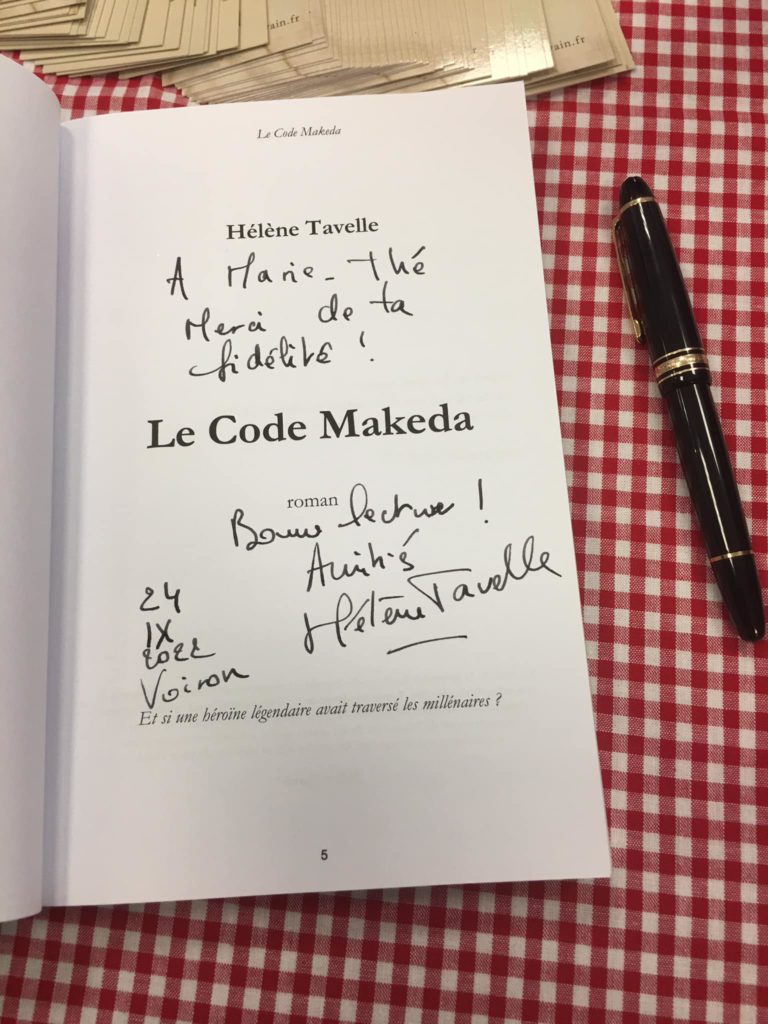 vain.fr
vain.fr
Le Code Makeda
Hélène Tavelle
A Marie-Thé
Merci de ta
fidélité !
Le Code Makeda
roman
Bonne lecture !
Amitiés
Hélène Tavelle
24
IX
2022
Voiron
Et si une héroïne légendaire avait traversé les millénaires ?
5